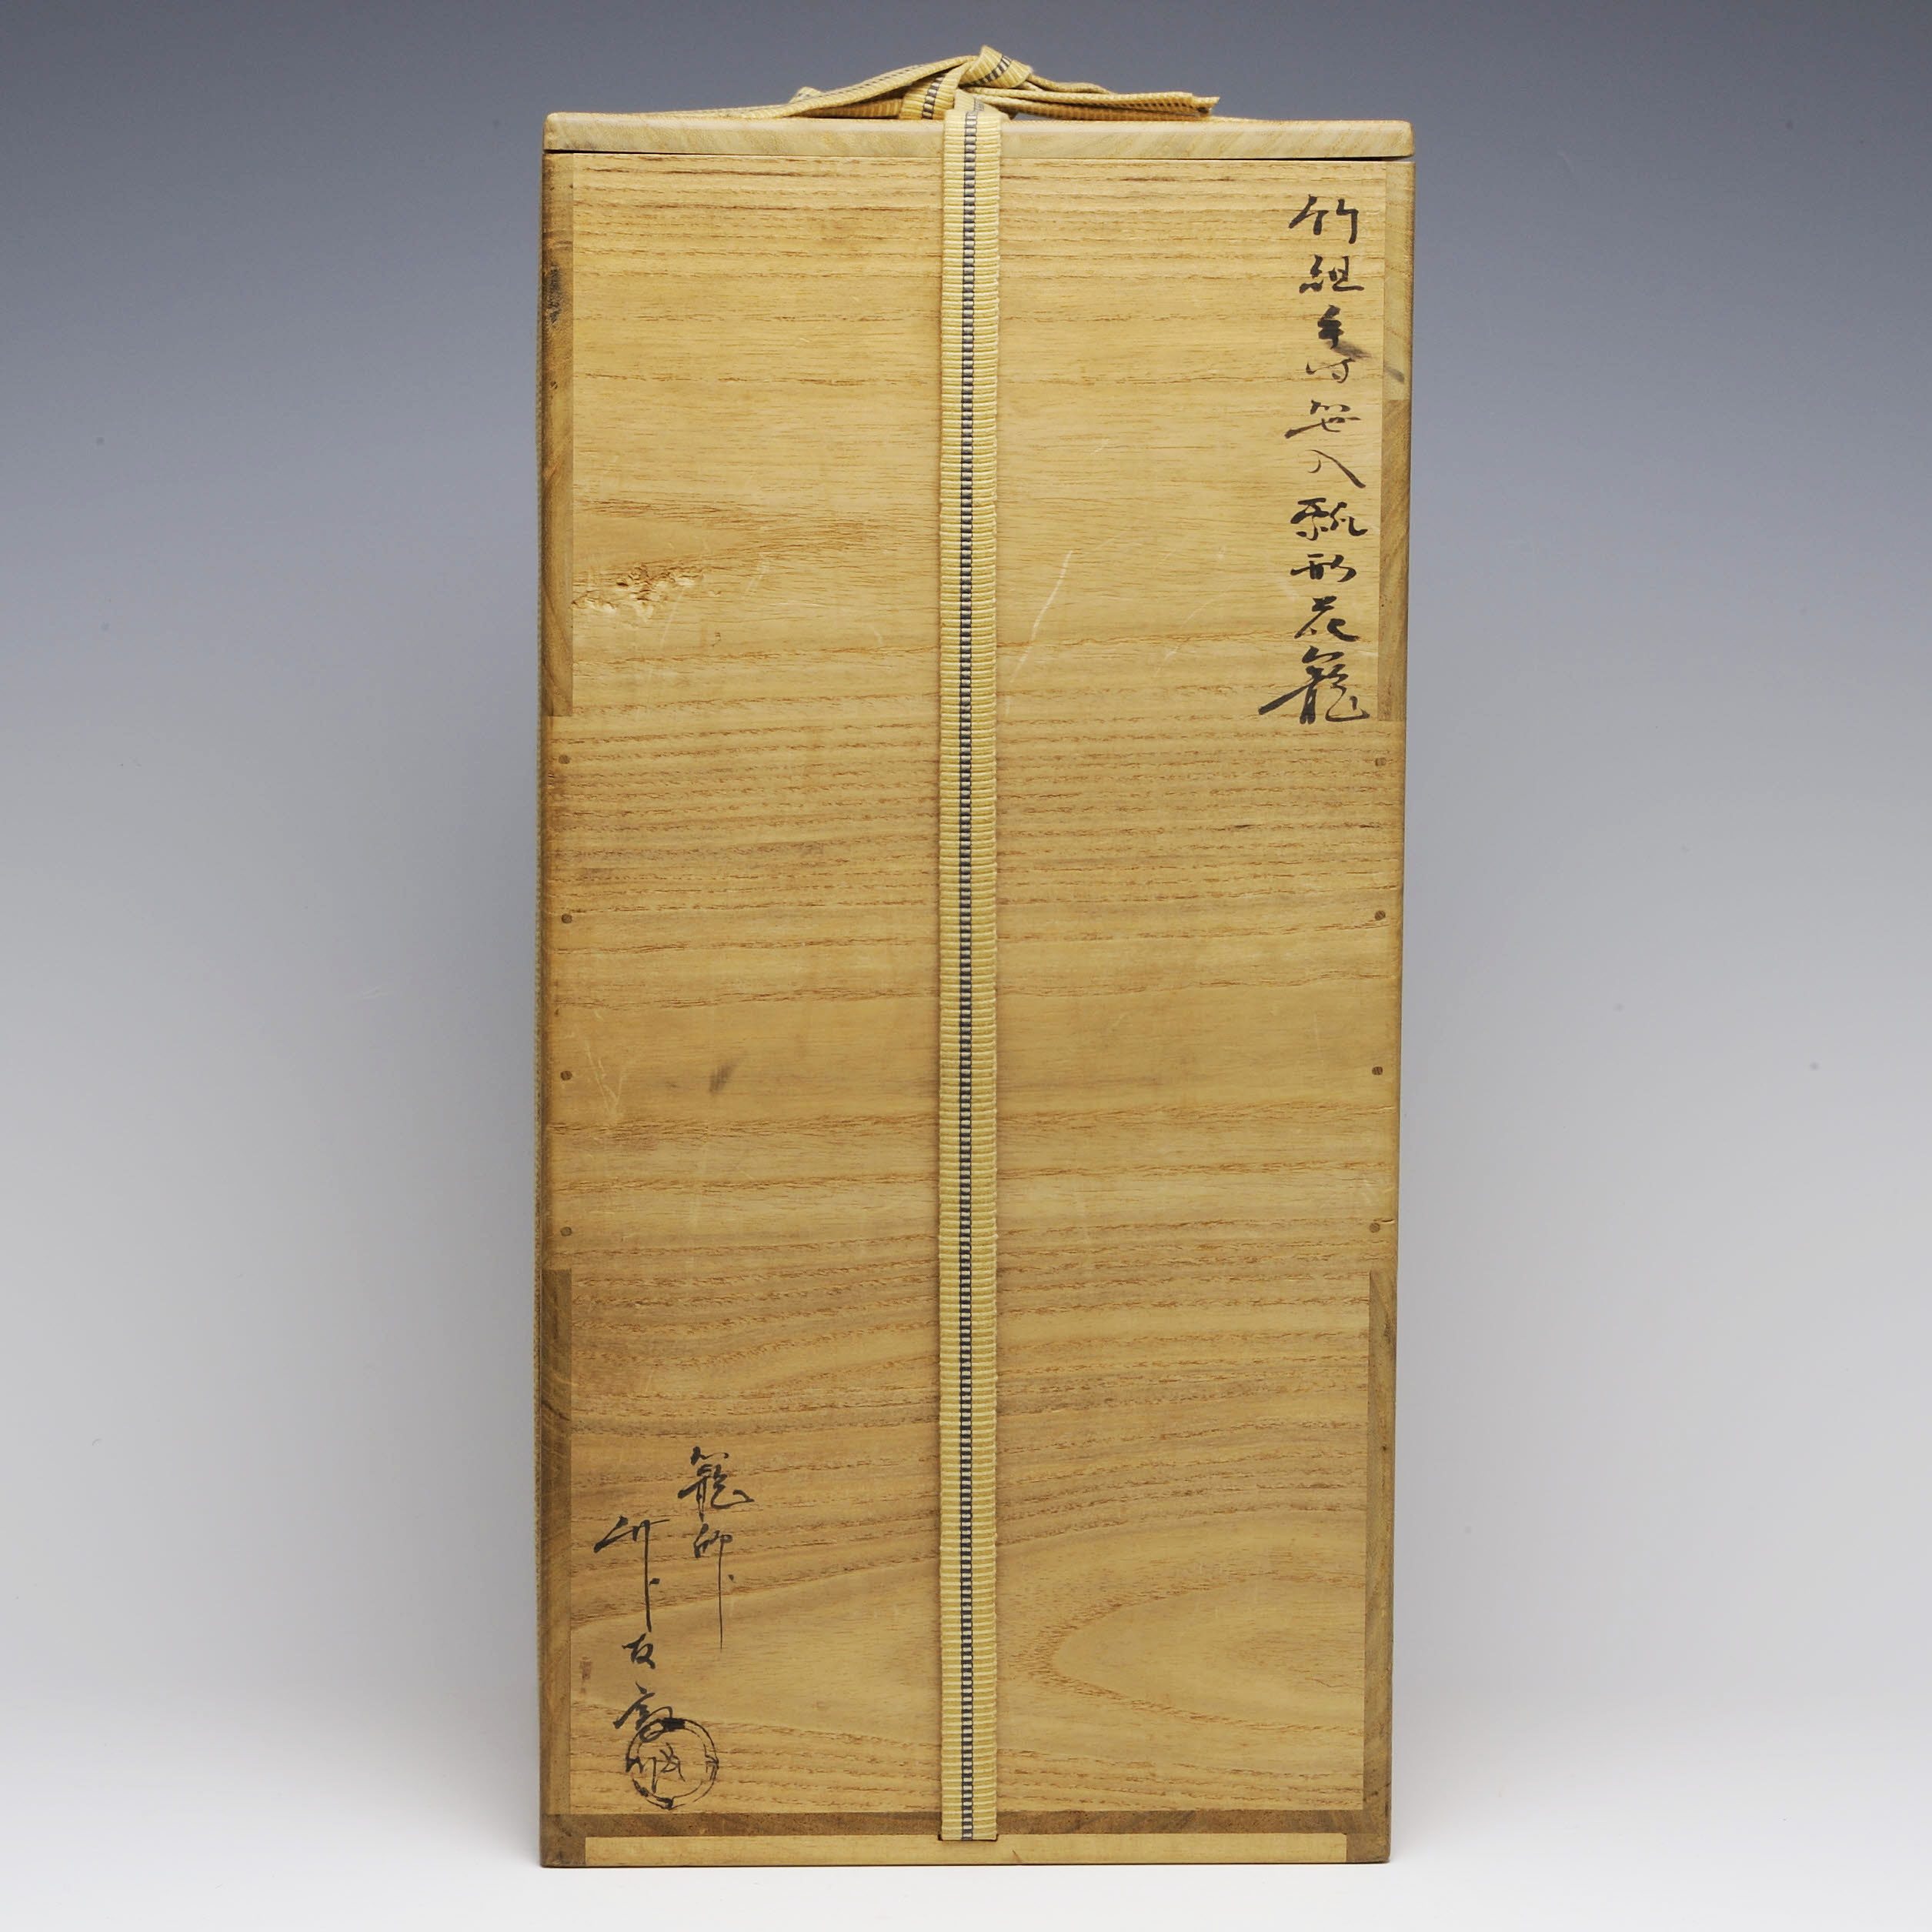 竹組手付笹入瓢形花籠
籠師
竹友斎